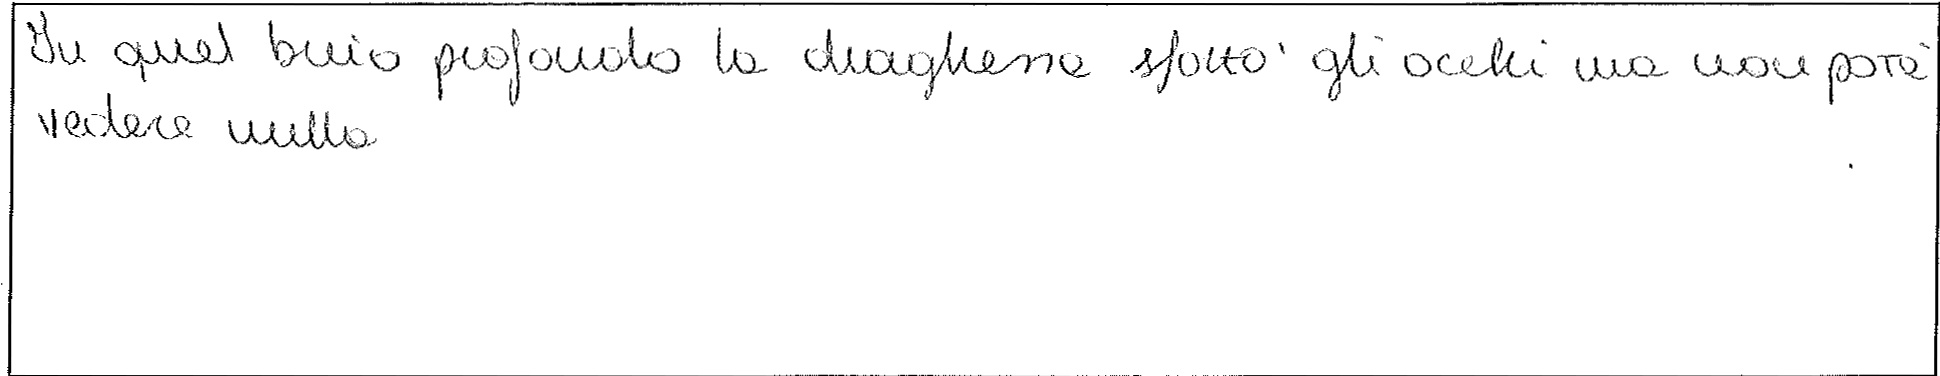 In quel buio profondo la draghessa sfottò gli occhi ma non potè
vedere nulla